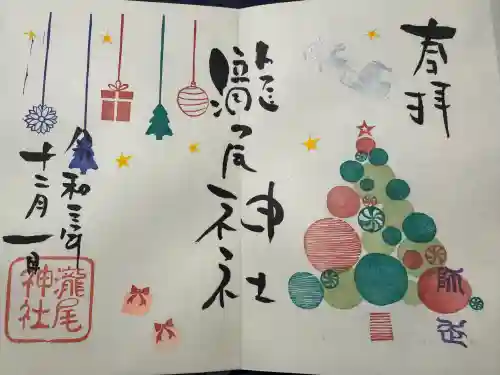 奉拝
瀧尾神社
瀧尾神社
令和三年
十二月一日
瀧尾
神社